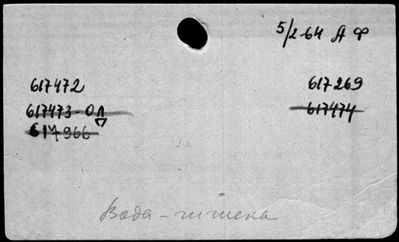 5/2-64 А Ф
617472
617269
617473-ОЛ
617474
617966
Вода-гигиена